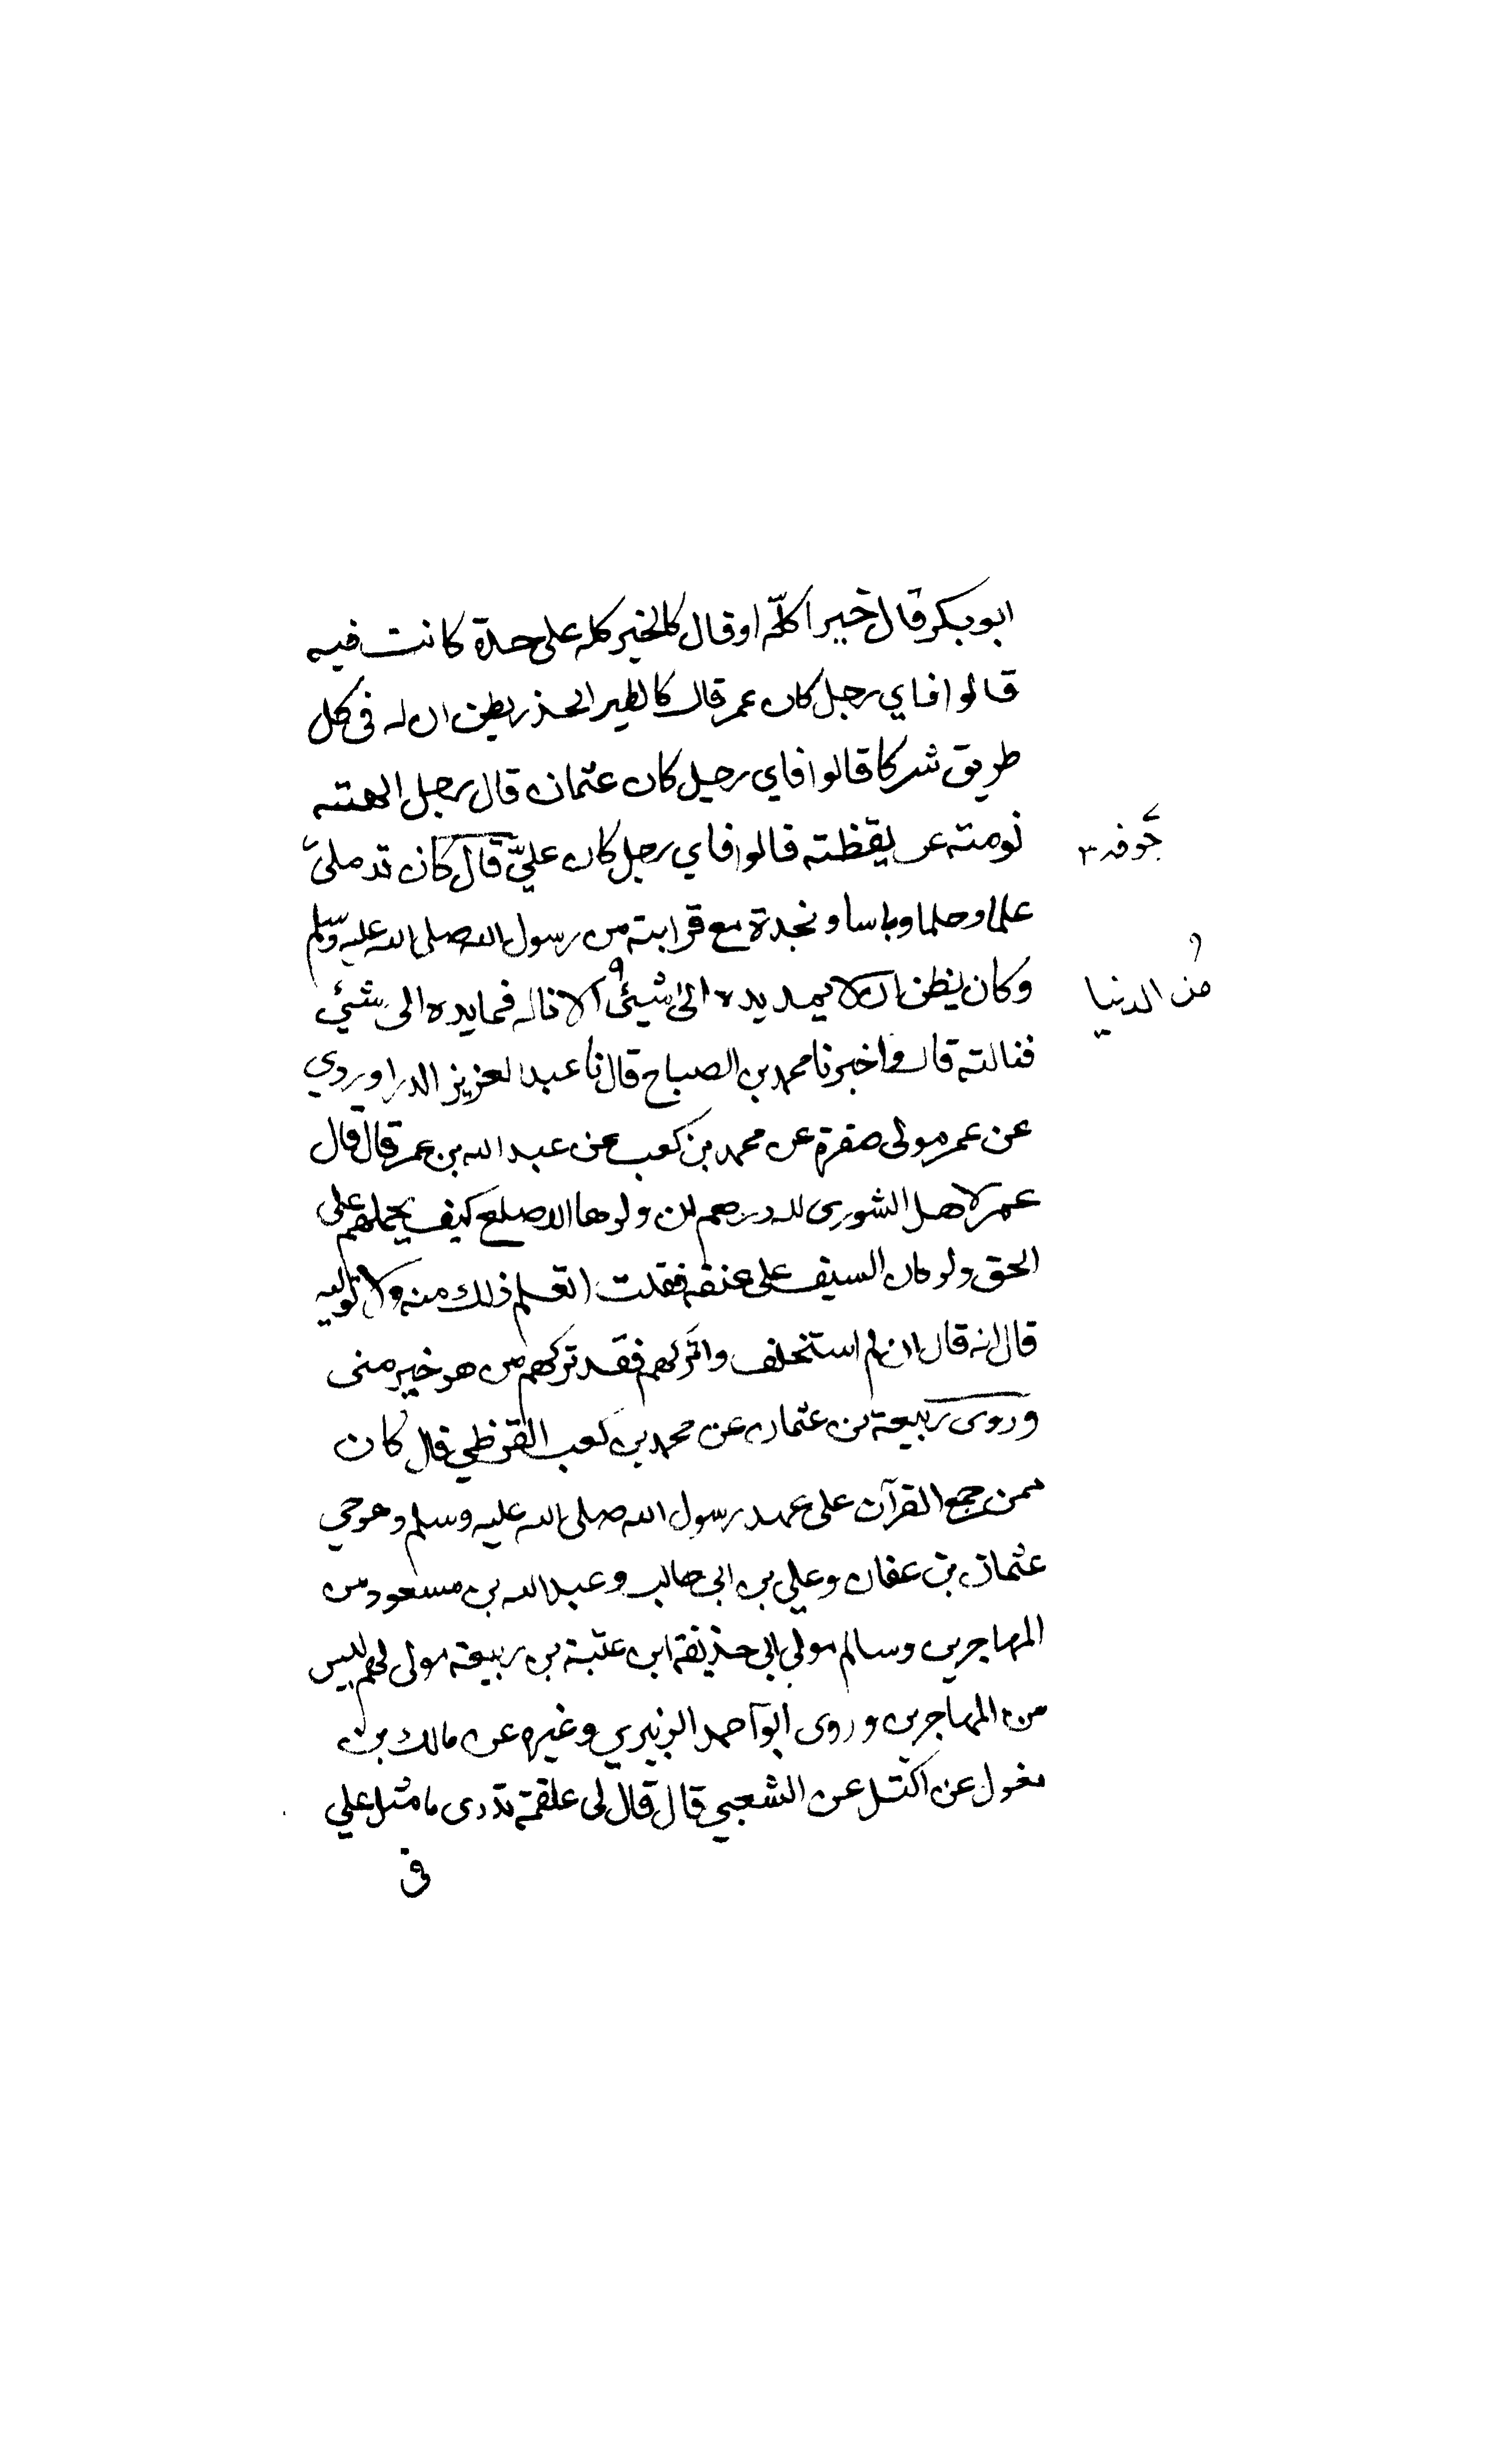 ابو بكر قال خيرا كله او قال كالخير كله على حدة كانت فيه
قالوا فاي رجل كان عمر قال كالطير الحذر يظن ان له فى كل
طريق شركا قالوا فاي رجل كان عثمان قال رجل الهته
نومته عن يقظته قالوا فاي رجل كان عليّ قال كان قد ملئ
جوفه ٣
علما وحلما وباسا ونجدة مع قرابته من رسول الله صلى الله عليه وسلم
وكان يظن ان لا يمد يده الى شيئ الا ناله فما يده الى شيئ
من الدنيا
فنالته قال واخبرنا محمد بن الصباح قال نا عبد العزيز الدراوردي
عن عمر مولى صفرة عن محمد بن كعب عن عبد الله بن عمر قال قال
عمر لاهل الشورى لله درهم لن ولوها الاصلع كيف يحملهم على
الحق ولو كان السيف على عنقه فقلت اتعلم ذلك منه ولا توليه
قال انه قال ان لم استخلف واتركهم فقد تركهم من هو خير منى
وروى ربيعة بن عثمان عن محمد بن كعب القرظي قال كان
ممن جمع القرآن على عهد رسول الله صلى الله عليه وسلم وهو حي
عثمان بن عفان وعلي بن ابى طالب وعبد الله بن مسعود من
المهاجرين وسالم مولى ابى حذيفة ابن عتبة بن ربيعة مولى لهم ليس
من المهاجرين وروى ابو احمد الزبيري وغيره عن مالك بن
مغول عن اكتل عن الشعبي قال قال لى علقمة تدرى ما مثل علي
فى